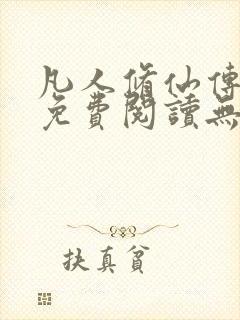 凡人脩仙傳
免費閱讀無
扶真貧